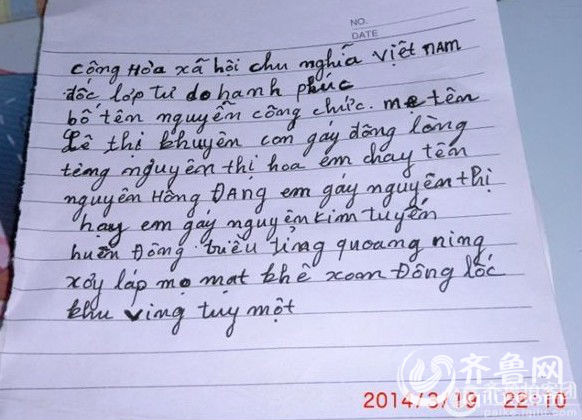 NO.
DATE
cộng Hòa xã hội chu nghĩa việt NAM
đốc lớp tư do hanh phúc
bố tên nguyễn công chức. mẹ tên
Lê thị khuyên con gáy đông lòng
tèng nguyên thị hoa em chay tên
nguyên Hồng ĐANg em gáy nguyên thị
hay em gáy nguyên kim tuyến
huên Đông triều tỉng quoang ning
xởy láp mọ mạt khê xoan Đông lốc
khu ving tuy một
齐鲁网
2014/3/19 22:10